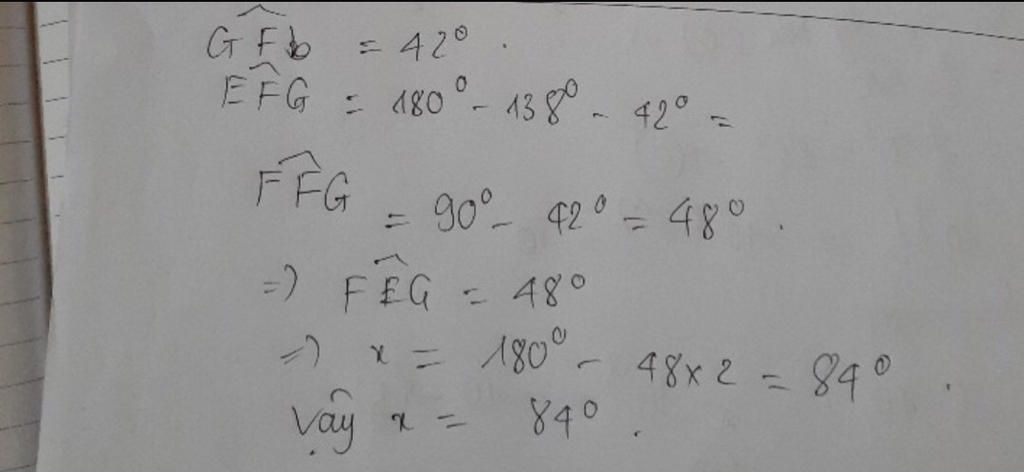 GF̂b = 42° .
EF̂G = 180° - 138° - 42° =
FF̂G = 90° - 42° = 48° .
=) FÊG = 48°
=) x = 180° - 48x2 = 84° .
Vậy x = 84° .